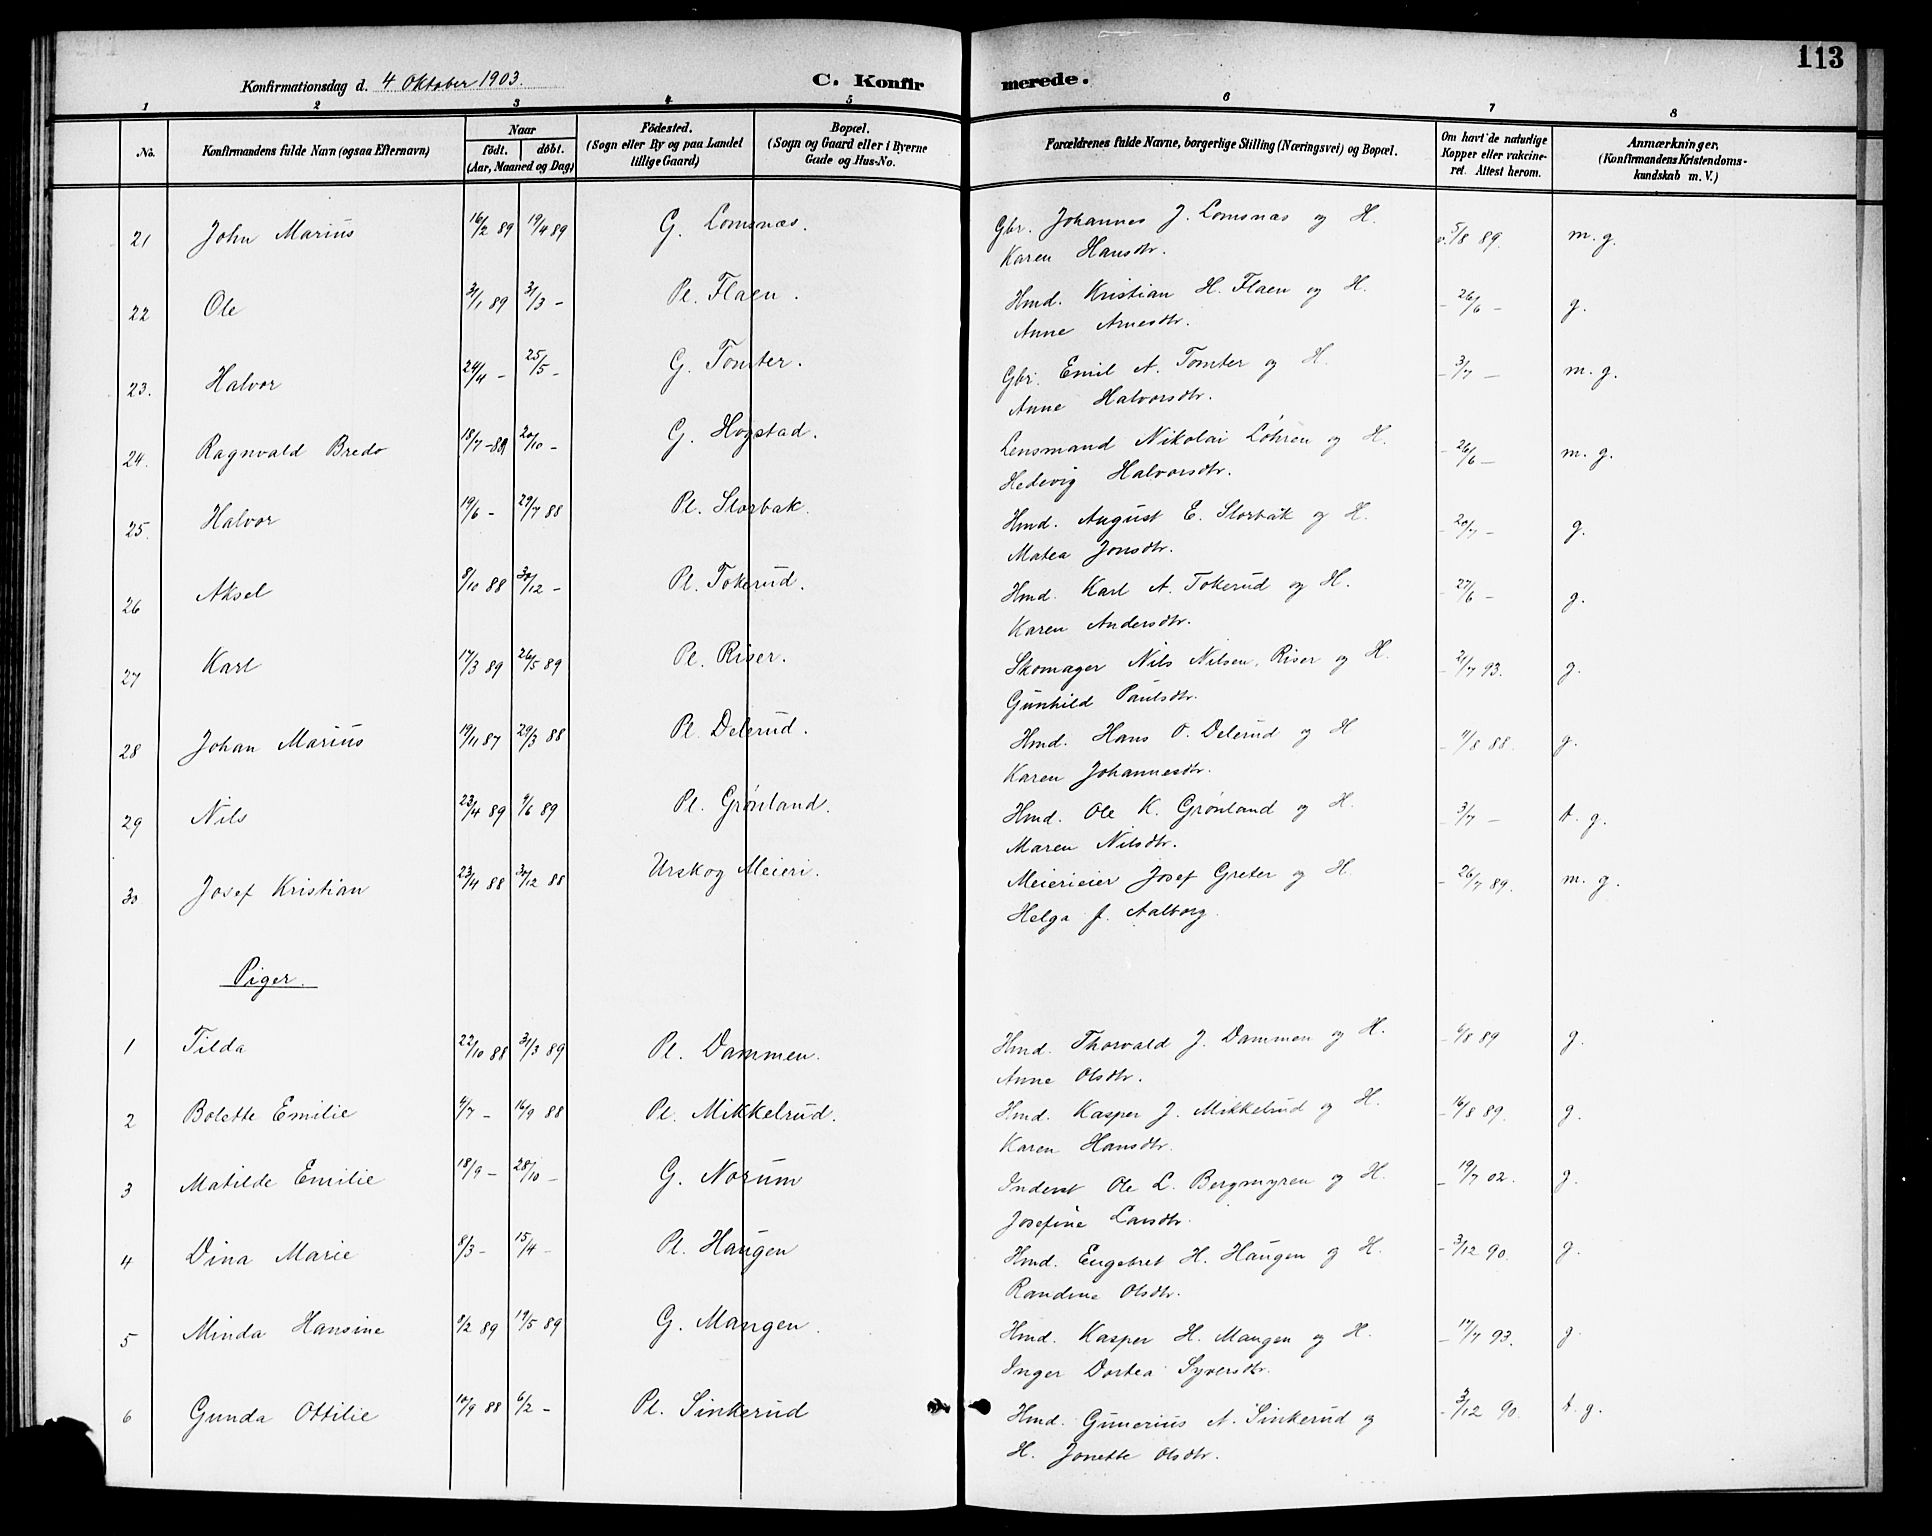 113
Konfirmationsdag d. 4 Oktober 1903.
C. Konfirmerede.
1 2 3 4 5 6 7 8
No. Konfirmandens fulde Navn (ogsaa Efternavn) Naar födt. döbt. (Aar, Maaned og Dag) Födested. (Sogn eller By og paa Landet tillige Gaard) Bopæl. (Sogn og Gaard eller i Byerne Gade og Hus-No. Forældrenes fulde Navne, borgerlige Stilling (Næringsvei) og Bopæl. Om havt de naturlige Kopper eller vakcineret. Attest herom. Anmærkninger, (Konfirmandens Kristendomskundskab m. V.)
21 John Marius 16/2 89 19/4 89 G. Lomsnæs. Gbr. Johannes J. Lomsnæs og H. v. 5/8 89. m. g.
Karen Hansdtr.
22 Ole 31/1 89 31/3 - Pl. Flaen. Hmd. Kristian H. Flaen og H. - 26/6 - g.
Anne Arnesdtr.
23. Halvor 24/4 - 25/5 - G. Tomter. Gbr. Emil A. Tomter og H. - 3/7 - m. g.
Anne Halvorsdtr.
24. Ragnvald Bredo 18/7 - 89 20/10 - G. Hogstad. Lensmand Nikolai Löhren og H. - 26/6 - m. g.
Hedevig Halvorsdtr.
25. Halvor 19/6 - 29/7 88 Pl. Storbak. Hmd. August E. Storbak og H. - 20/7 - g.
Matea Jonsdtr.
26 Aksel 8/10 88 30/12 - Pl. Tokerud. Hmd. Karl A. Tokerud og H. - 27/6 - g.
Karen Andersdtr.
27 Karl 17/3 89 26/5 89 Pl. Riser. Skomager Nils Nilsen, Riser og H. - 21/7 93. g.
Gunhild Paulsdtr.
28 Johan Marius 19/11 87 29/3 88 Pl. Delerud. Hmd. Hans O. Delerud og H - 11/8 88. g.
Karen Johannesdtr.
29 Nils 23/4 89 9/6 89 Pl. Grönland. Hmd. Ole K. Grönland og H. - 3/7 - t. g.
Maren Nilsdtr.
30 Josef Kristian 23/4 88 30/12 88 Urskog Meieri. Meierieier Josef Greter og H. - 26/7 89. m. g.
Helga f. Aalborg.
Piger.
1 Tilda 22/10 88 31/3 89 Pl. Dammen. Hmd. Thorvald J. Dammen og H. - 6/8 89 g.
Anne Olsdtr.
2 Bolette Emilie 4/7 - 16/9 88 Pl. Mikkelrud. Hmd. Kasper J. Mikkelrud og H. - 16/8 89. g.
Karen Hansdtr.
3 Matilde Emilie 18/9 - 28/10 - G. Norum Inderst Ole L. Bergmyren og H. - 19/7 02. g.
Josefine Larsdtr.
4 Dina Marie 8/3 - 15/4 - Pl. Haugen Hmd. Engebret H. Haugen og H. - 3/12 90. g.
Randine Olsdtr.
5 Minda Hansine 8/2 89 19/5 89 G. Mangen. Hmd. Kasper H. Mangen og H. - 17/7 93. g.
Inger Dortea Syversdtr.
6 Gunda Ottilie 10/9 88 6/2 - Pl. Sinkerud Hmd. Gunerius A. Sinkerud og - 3/12 90. t. g.
H. Jonette Olsdtr.